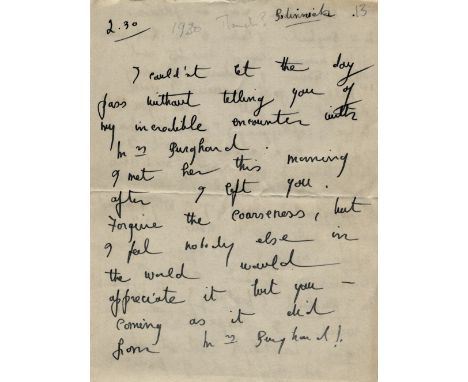 2.30 1930 March? .13
I could'nt let the day
pass without telling you of
my incredible encounter with
Mrs Burghard.
I met her this morning
after I left you.
Forgive the coarseness, but
I feel nobody else in
the world would
appreciate it but you —
coming as it did
from Mrs Burghard!.